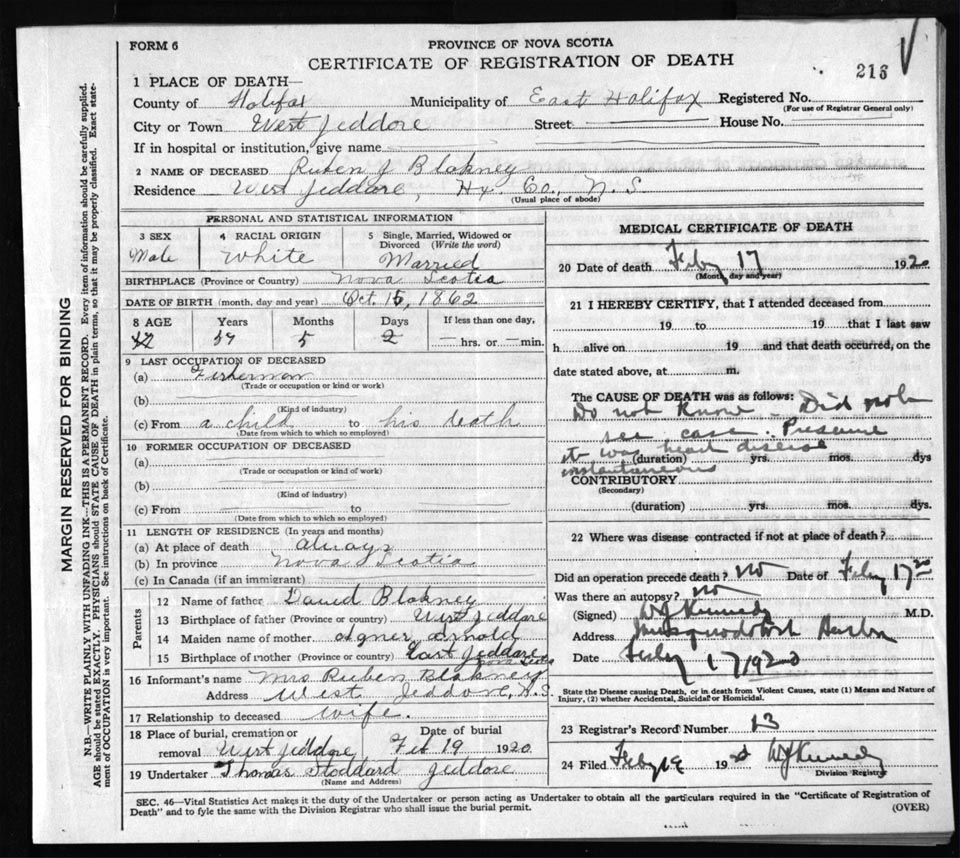 FORM 6
PROVINCE OF NOVA SCOTIA
CERTIFICATE OF REGISTRATION OF DEATH
213
1 PLACE OF DEATH—
County of Halifax Municipality of East Halifax Registered No.
(For use of Registrar General only)
City or Town West Jeddore Street House No.
If in hospital or institution, give name
2 NAME OF DECEASED Ruben J Blakney
Residence West Jeddore, Hx Co., N.S.
(Usual place of abode)
PERSONAL AND STATISTICAL INFORMATION
3 SEX
Male
4 RACIAL ORIGIN
White
5 Single, Married, Widowed or
Divorced (Write the word)
Married
BIRTHPLACE (Province or Country) Nova Scotia
DATE OF BIRTH (month, day and year) Oct. 15, 1862
8 AGE Years Months Days If less than one day,
57 5 2 hrs. or min.
9 LAST OCCUPATION OF DECEASED
(a) Fisherman
(Trade or occupation or kind or work)
(b)
(Kind of industry)
(c) From a child to his death
(Date from which to which so employed)
10 FORMER OCCUPATION OF DECEASED
(a)
(Trade or occupation or kind of work)
(b)
(Kind of industry)
(c) From to
(Date from which to which so employed)
11 LENGTH OF RESIDENCE (In years and months)
(a) At place of death always
(b) In province Nova Scotia
(c) In Canada (if an immigrant)
Parents
12 Name of father David Blakney
13 Birthplace of father (Province or country) West Jeddore
14 Maiden name of mother Agnes Arnold
15 Birthplace of mother (Province or country) East Jeddore
Nova Scotia
16 Informant's name Mrs Ruben Blakney
Address West Jeddore, N.S.
17 Relationship to deceased wife.
18 Place of burial, cremation or Date of burial
removal West Jeddore Feb 19 1920
19 Undertaker Thomas Stoddard Jeddore
(Name and Address)
MEDICAL CERTIFICATE OF DEATH
20 Date of death Feby 17 1920
(Month, day and year)
21 I HEREBY CERTIFY, that I attended deceased from
19 to 19 that I last saw
h alive on 19 and that death occurred, on the
date stated above, at m.
The CAUSE OF DEATH was as follows:
Do not know - Did not
see case. Presume
it was heart disease
(duration) yrs. mos. dys
instantaneous
CONTRIBUTORY
(Secondary)
(duration) yrs. mos. dys.
22 Where was disease contracted if not at place of death?
Did an operation precede death? No Date of Feby 17 20
Was there an autopsy? no
(Signed) WJ Kennedy M.D.
Address Musquodoboit Harbor
Date Feby 17 1920
State the Disease causing Death, or in death from Violent Causes, state (1) Means and Nature of
Injury, (2) whether Accidental, Suicidal or Homicidal.
23 Registrar's Record Number 13
24 Filed Feby 19 1920 WJ Kennedy
Division Registrar
SEC. 46—Vital Statistics Act makes it the duty of the Undertaker or person acting as Undertaker to obtain all the particulars required in the "Certificate of Registration of
Death" and to fyle the same with the Division Registrar who shall issue the burial permit.
(OVER)
MARGIN RESERVED FOR BINDING
N.B.—WRITE PLAINLY WITH UNFADING INK—THIS IS A PERMANENT RECORD. Every item of information should be carefully supplied.
AGE should be stated EXACTLY. PHYSICIANS should STATE CAUSE OF DEATH in plain terms, so that it may be properly classified. Exact state-
ment of OCCUPATION is very important. See instructions on back of Certificate.